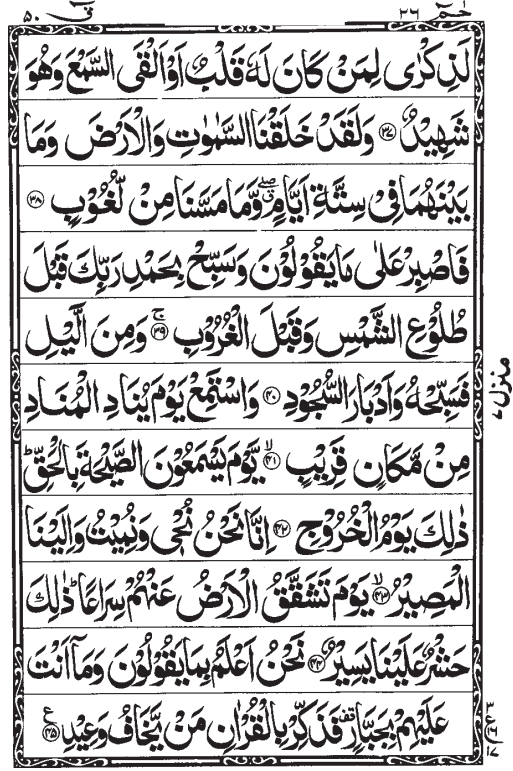 حٰمٓ ٢٦
قٓ ٥٠
لَذِكْرٰى لِمَنْ كَانَ لَهٗ قَلْبٌ اَوْ اَلْقَى السَّمْعَ وَهُوَ
شَهِيْدٌ ﴿٣٧﴾ وَلَقَدْ خَلَقْنَا السَّمٰوٰتِ وَالْاَرْضَ وَمَا
بَيْنَهُمَا فِىْ سِتَّةِ اَيَّامٍ ۖ وَّمَا مَسَّنَا مِنْ لُّغُوْبٍ ﴿٣٨﴾
فَاصْبِرْ عَلٰى مَا يَقُوْلُوْنَ وَسَبِّحْ بِحَمْدِ رَبِّكَ قَبْلَ
طُلُوْعِ الشَّمْسِ وَقَبْلَ الْغُرُوْبِ ﴿٣٩﴾ۚ وَمِنَ الَّيْلِ
فَسَبِّحْهُ وَاَدْبَارَ السُّجُوْدِ ﴿٤٠﴾ وَاسْتَمِعْ يَوْمَ يُنَادِ الْمُنَادِ
مِنْ مَّكَانٍ قَرِيْبٍ ﴿٤١﴾ۙ يَّوْمَ يَسْمَعُوْنَ الصَّيْحَةَ بِالْحَقِّ ؕ
ذٰلِكَ يَوْمُ الْخُرُوْجِ ﴿٤٢﴾ اِنَّا نَحْنُ نُحْىٖ وَنُمِيْتُ وَاِلَيْنَا
الْمَصِيْرُ ﴿٤٣﴾ۙ يَوْمَ تَشَقَّقُ الْاَرْضُ عَنْهُمْ سِرَاعًا ؕ ذٰلِكَ
حَشْرٌ عَلَيْنَا يَسِيْرٌ ﴿٤٤﴾ نَحْنُ اَعْلَمُ بِمَا يَقُوْلُوْنَ وَمَاۤ اَنْتَ
عَلَيْهِمْ بِجَبَّارٍ قف فَذَكِّرْ بِالْقُرْاٰنِ مَنْ يَّخَافُ وَعِيْدِ ﴿٤٥﴾ ع
منزل ٧